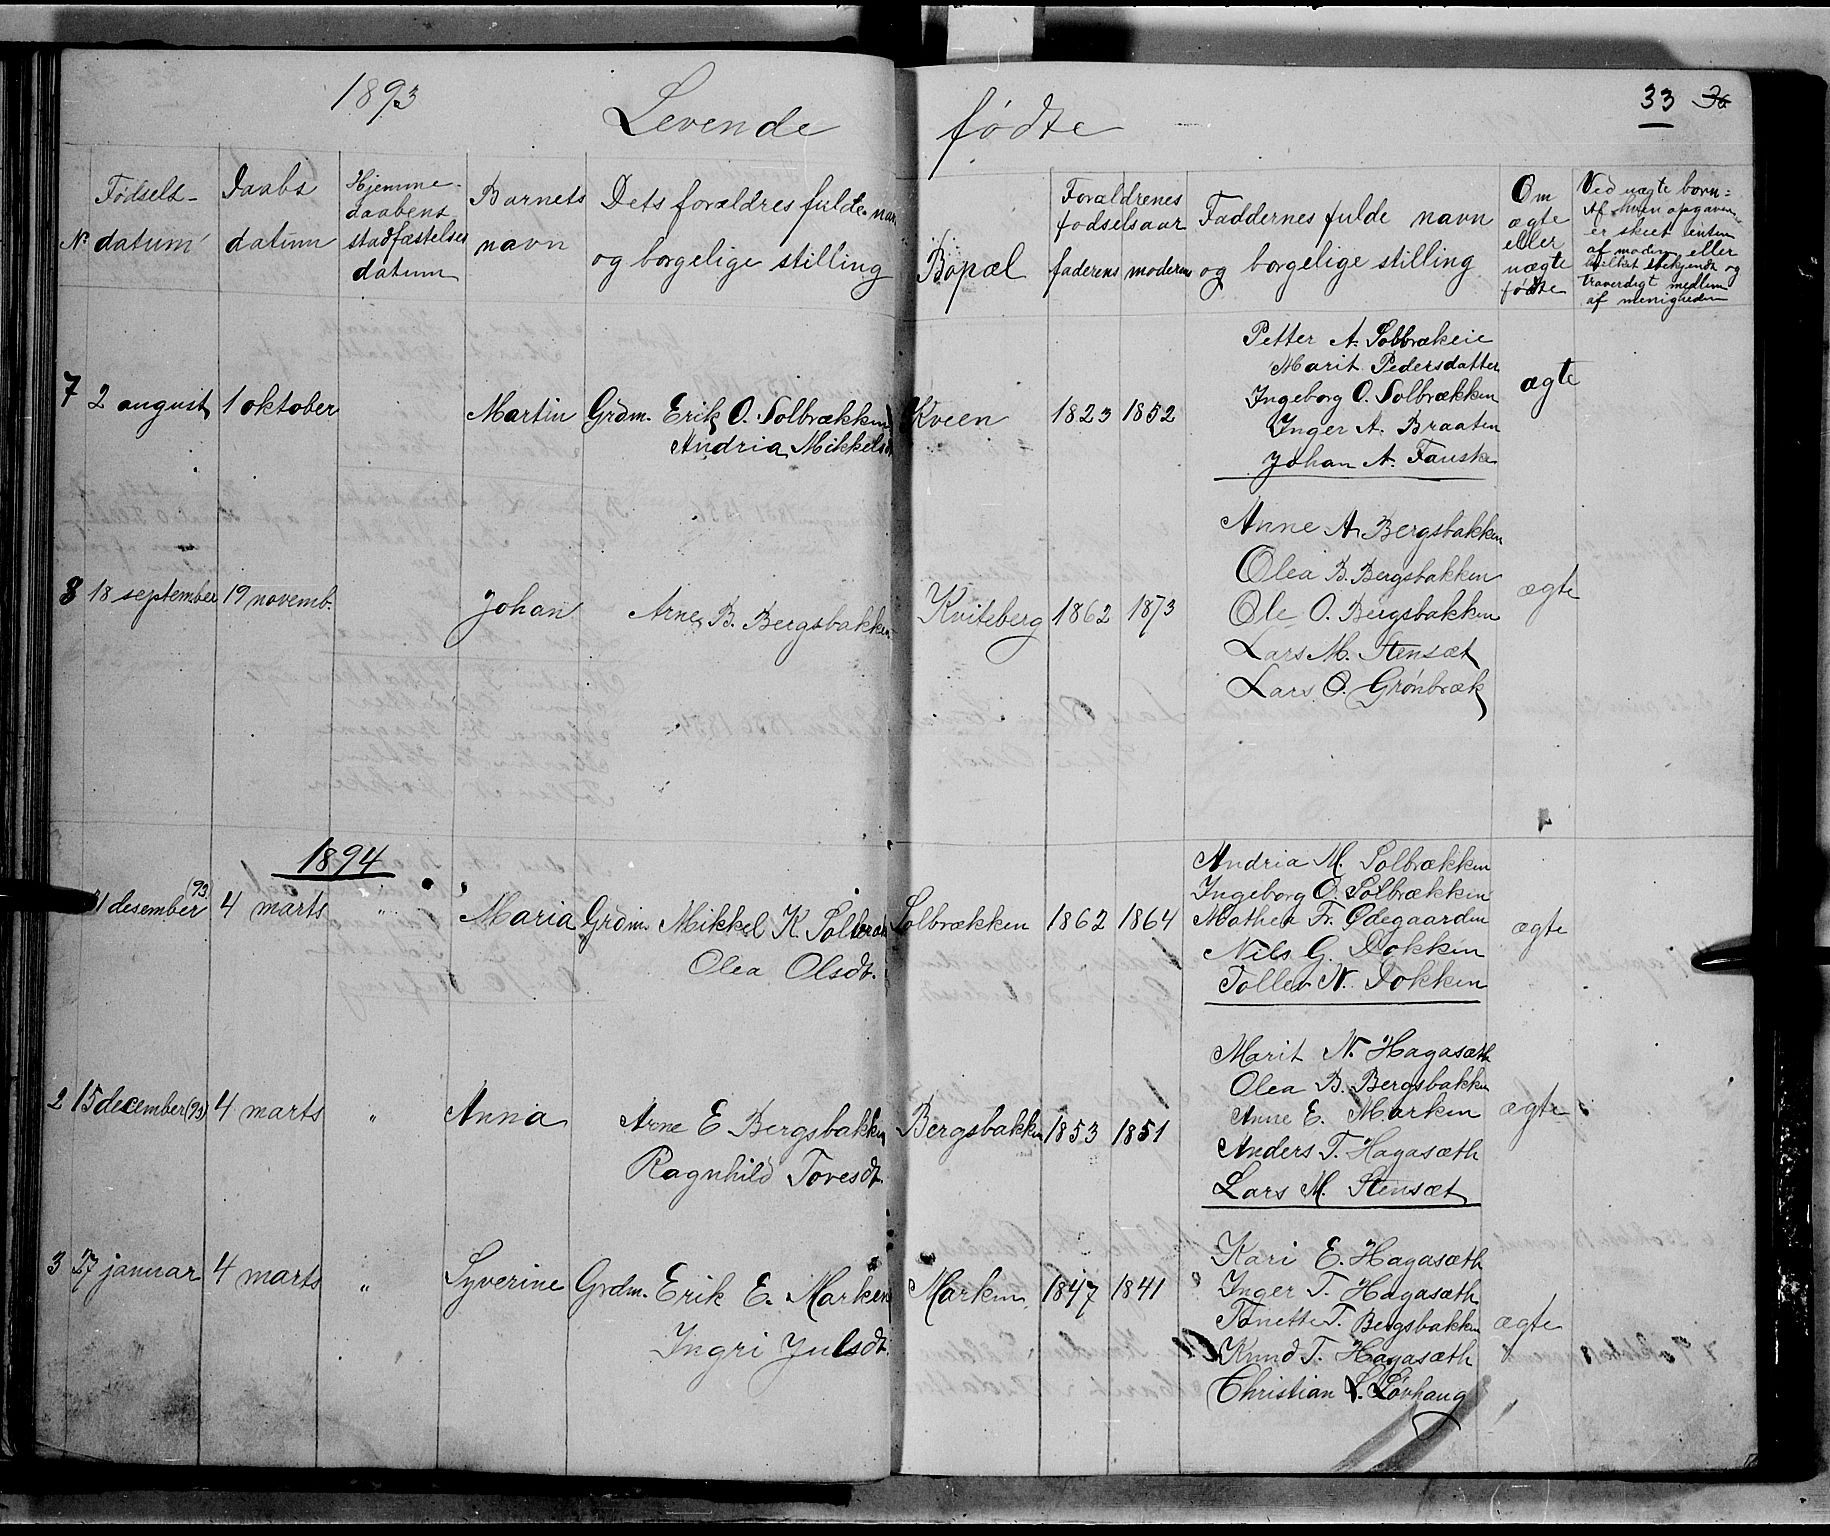 1893
Levende fødte
33 36
Nº
Fødsels-
datum
Daabs
datum
Hjemme-
daabens
stadfæstelses
datum
Barnets
navn
Dets forældres fulde navn
og borgelige stilling
Bopæl
Forældrenes
fødselsaar
faderens moderens
Faddernes fulde navn
og borgelige stilling
Om
ægte
eller
uægte
fødte
Ved uægte børn:
Af hvem opgaven
er skeet enten
af moderen eller
hvilket bekjendt og
troverdigt medlem
af menigheden
7 2 august 1 oktober Martin Grdm. Erik O. Solbrækken Kveen 1823 1852 ægte
Andria Mikkelsd
Petter A. Solbrækeie
Marit Pedersdatter
Ingeborg O. Solbrækken
Inger A. Braaten
Johan A. Fauske
8 18 september 19 novemb. Johan Arne B. Bergsbakken Kviteberg 1862 1873 ægte
Anne A. Bergsbakken
Olea B. Bergsbakken
Ole O. Bergsbakken
Lars M. Stensæt
Lars O. Grønbræk
1894
1 desember (93) 4 marts " Maria Grdm. Mikkel K. Solbræk Solbrækken 1862 1864 ægte
Olea Olsdt.
Andria M. Solbrækken
Ingeborg O. Solbrækken
Mathea Fr. Ødegaarden
Nils G. Dokken
Tollev N. Dokken
2 15 december (93) 4 marts " Anna Arne E Bergsbakken Bergsbakken 1853 1851 ægte
Ragnhild Toresdt.
Marit N. Hagasæth
Olea B. Bergsbakken
Anne E. Marken
Anders T. Hagasæth
Lars M. Stensæt
3 27 januar 4 marts " Syverine Grdm. Erik E. Marken Marken 1847 1841 ægte
Ingri Julsdt.
Kari E. Hagasæth
Inger T. Hagasæth
Tonette T. Bergsbakken
Knud T. Hagasæth
Christian L. Løvhaug